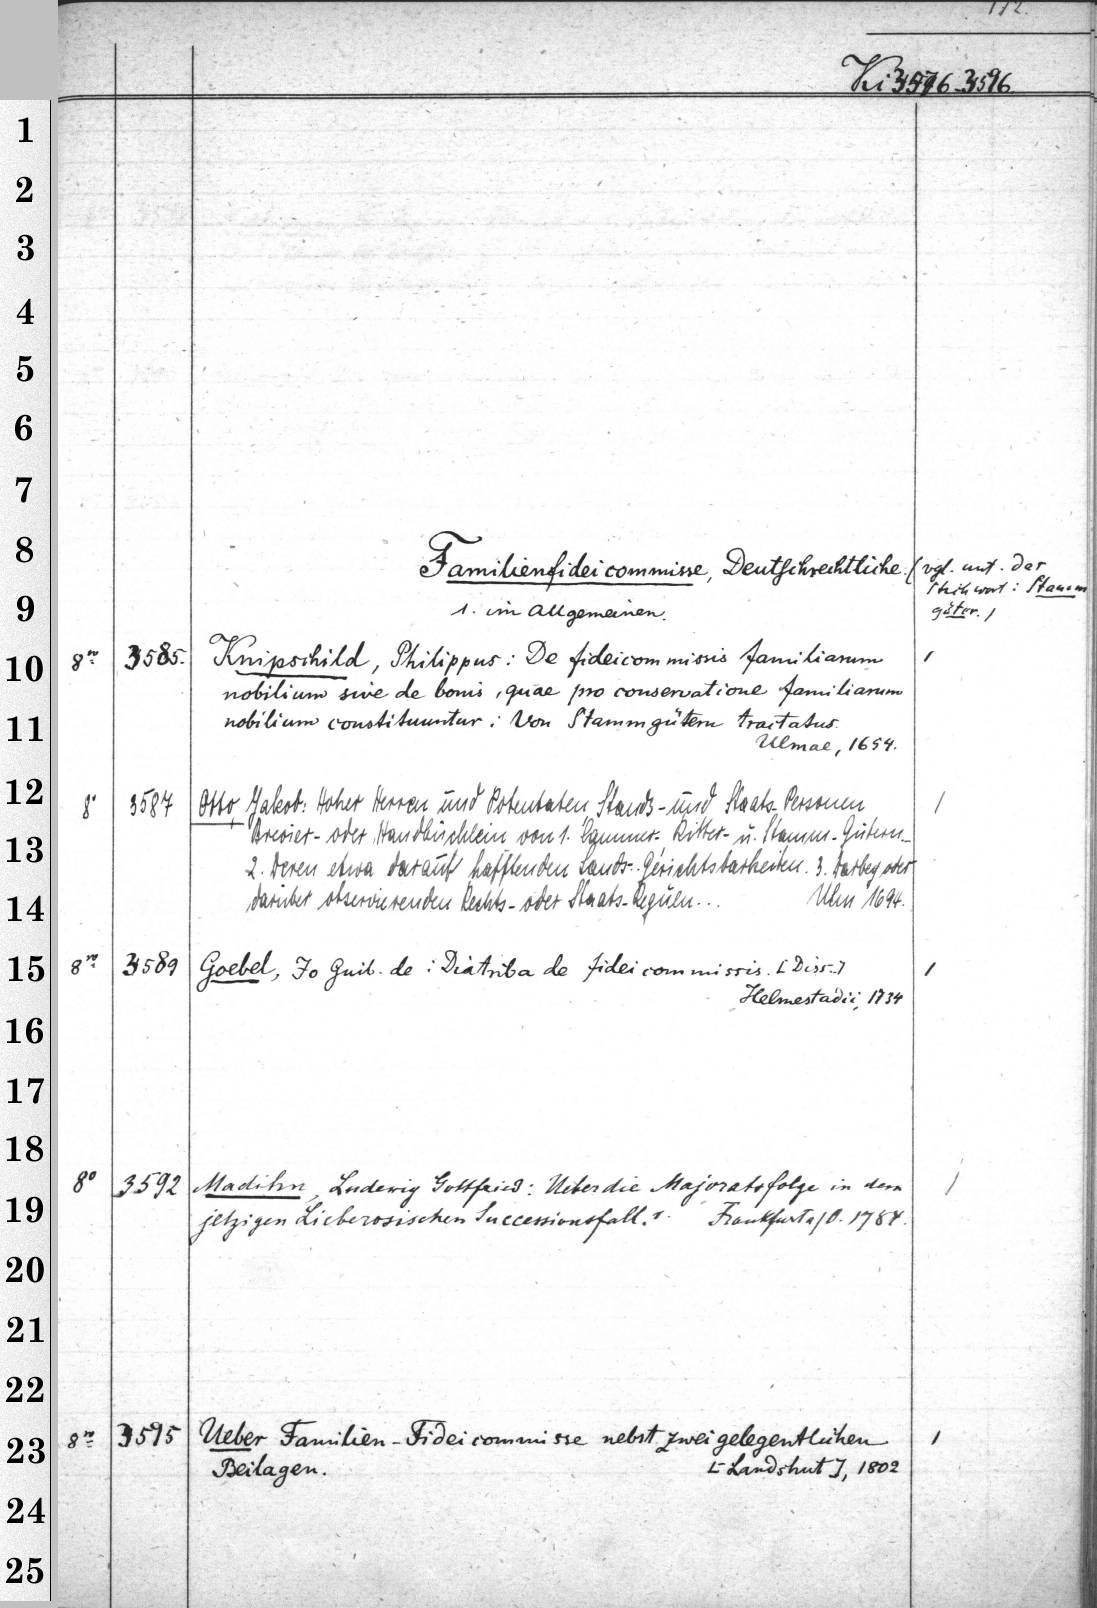 172.
Ki 3576-3596
1
2
3
4
5
6
7
8
9
10
11
12
13
14
15
16
17
18
19
20
21
22
23
24
25
Familienfideicommisse, Deutschrechtliche. (vgl. unt. das
Stichwort: Stamm
güter.)
1. im Allgemeinen.
8vo 3585. Knipschild, Philippus: De fideicommissis familiarum 1
nobilium sive de bonis, quae pro conservatione familiarum
nobilium constituuntur: Von Stammgütern tractatus.
Ulmae, 1654.
8° 3587 Otto, Jakob: Hoher Herren und Potentaten Stands- und Staats-Personen 1
Brevier- oder Handbüchlein von 1. Cammer- Ritter- u. Stamm-Gütern-
2. Deren etwa darauf hafftenden Lands-Gerichtsbarkeiten. 3. Darbey oder
darüber observierenden Rechts- oder Staats-Reguln... Ulm 1694.
8vo 3589 Goebel, Jo Guil. de: Diatriba de fideicommissis. [Diss.] 1
Helmestadii, 1734
8° 3592 Madihn, Ludewig Gottfried: Ueber die Majoratsfolge in dem 1
jetzigen Lieberosischen Successionsfall. Frankfurt a/O. 1784.
8vo 3595 Ueber Familien-Fideicommisse nebst zwei gelegentlichen 1
Beilagen. [Landshut], 1802